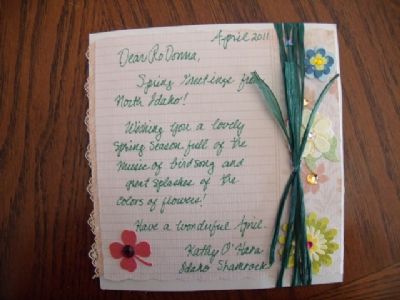 April 2011
Dear RoDonna,
Spring Greetings from
North Idaho!
Wishing You a lovely
Spring Season full of the
Music of birdsong and
great splashes of the
colors of flowers!
Have a wonderful April.
Kathy O'Hara
Idaho Shamrock